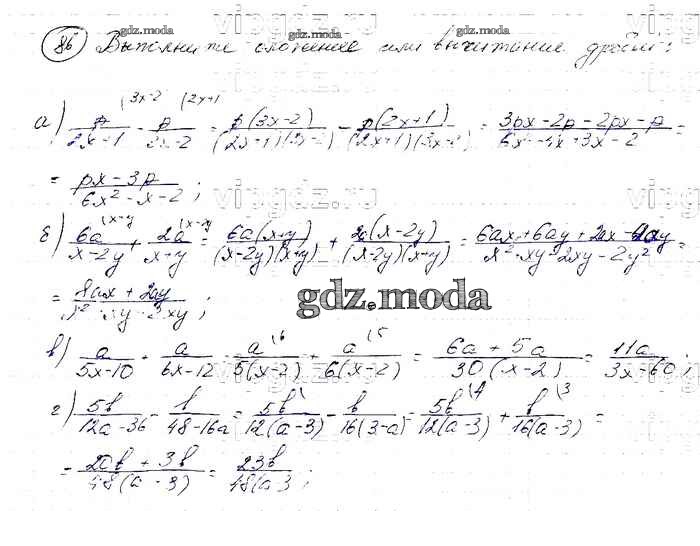 vipgdz.ru
gdz.moda gdz.moda gdz.moda
86 Выполните сложение или вычитание дробей:
(3x-2 (2x+1
а) p/(2x+1) - p/(3x-2) = p(3x-2)/((2x+1)(3x-2)) - p(2x+1)/((2x+1)(3x-2)) = (3px-2p-2px-p)/(6x²-4x+3x-2) =
= (px-3p)/(6x²-x-2) ;
vipgdz.ru
(x+y (x-2y
б) 6a/(x-2y) + 2a/(x+y) = 6a(x+y)/((x-2y)(x+y)) + 2a(x-2y)/((x-2y)(x+y)) = (6ax+6ay+2ax-4ay)/(x²+xy-2xy-2y²) =
= (8ax+2ay) ;
gdz.moda
(6 (5
в) a/(5x-10) + a/(6x-12) = a/(5(x-2)) + a/(6(x-2)) = (6a+5a)/(30(x-2)) = 11a/(3x-60) ;
(4 (3
г) 5b/(12a-36) - b/(48-16a) = 5b/(12(a-3)) - b/(16(3-a)) = 5b/(12(a-3)) + b/(16(a-3)) =
= (20b+3b)/(48(a-3)) = 23b/(48(a-3 ;